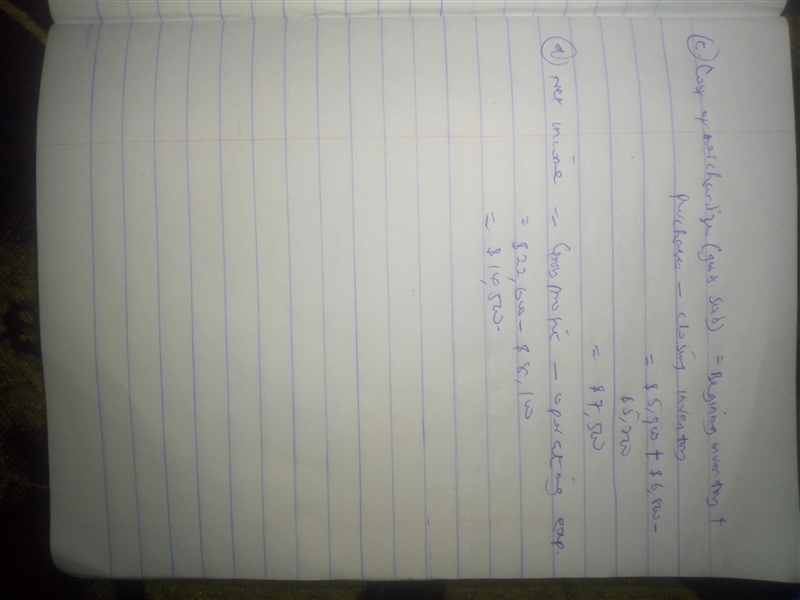 (c) Cost of merchandize (goods sold) = Begining inventory +
purchases - closing inventory
= $5,900 + $6,800 -
$5,200
= $7,500
(d) Net income = Gross profit - operating exp.
= $22,600 - $8,100
= $14,500.